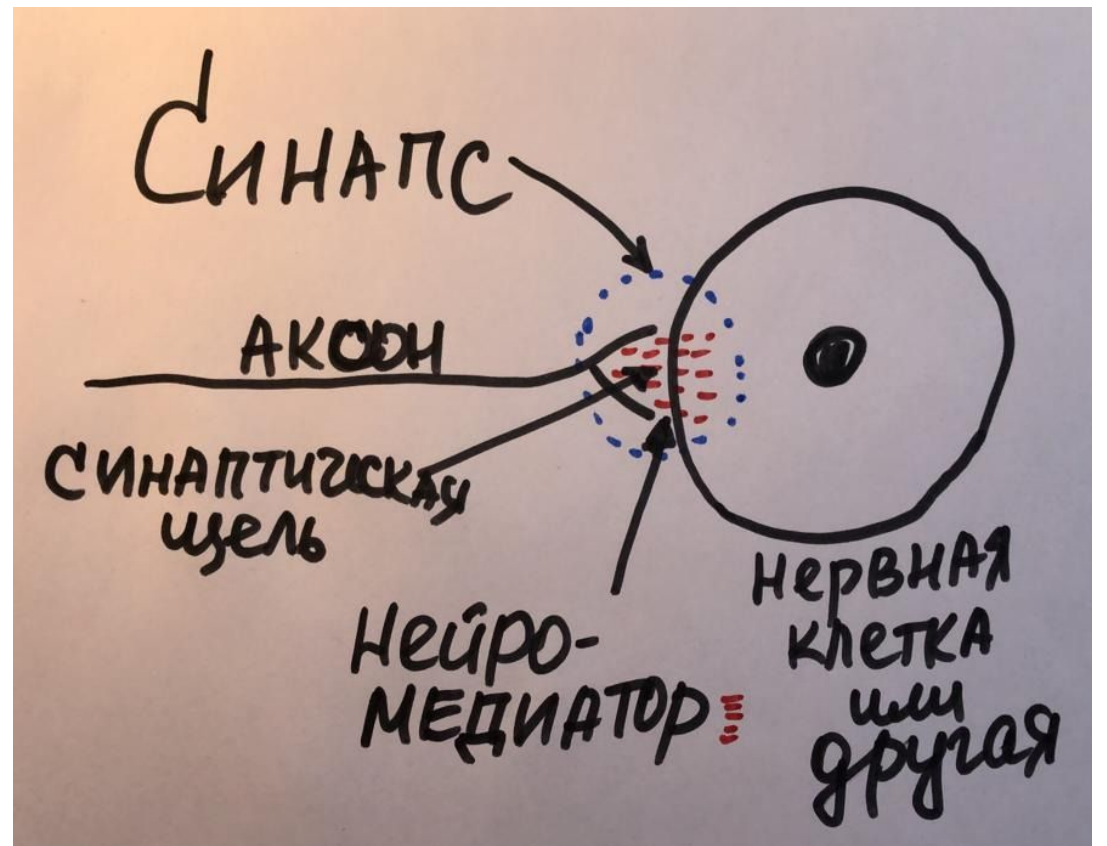 Синапс
АКСОН
СИНАПТИЧЕСКАЯ
щель
Нейро-
МЕДИАТОР
нервная
клетка
или
другая